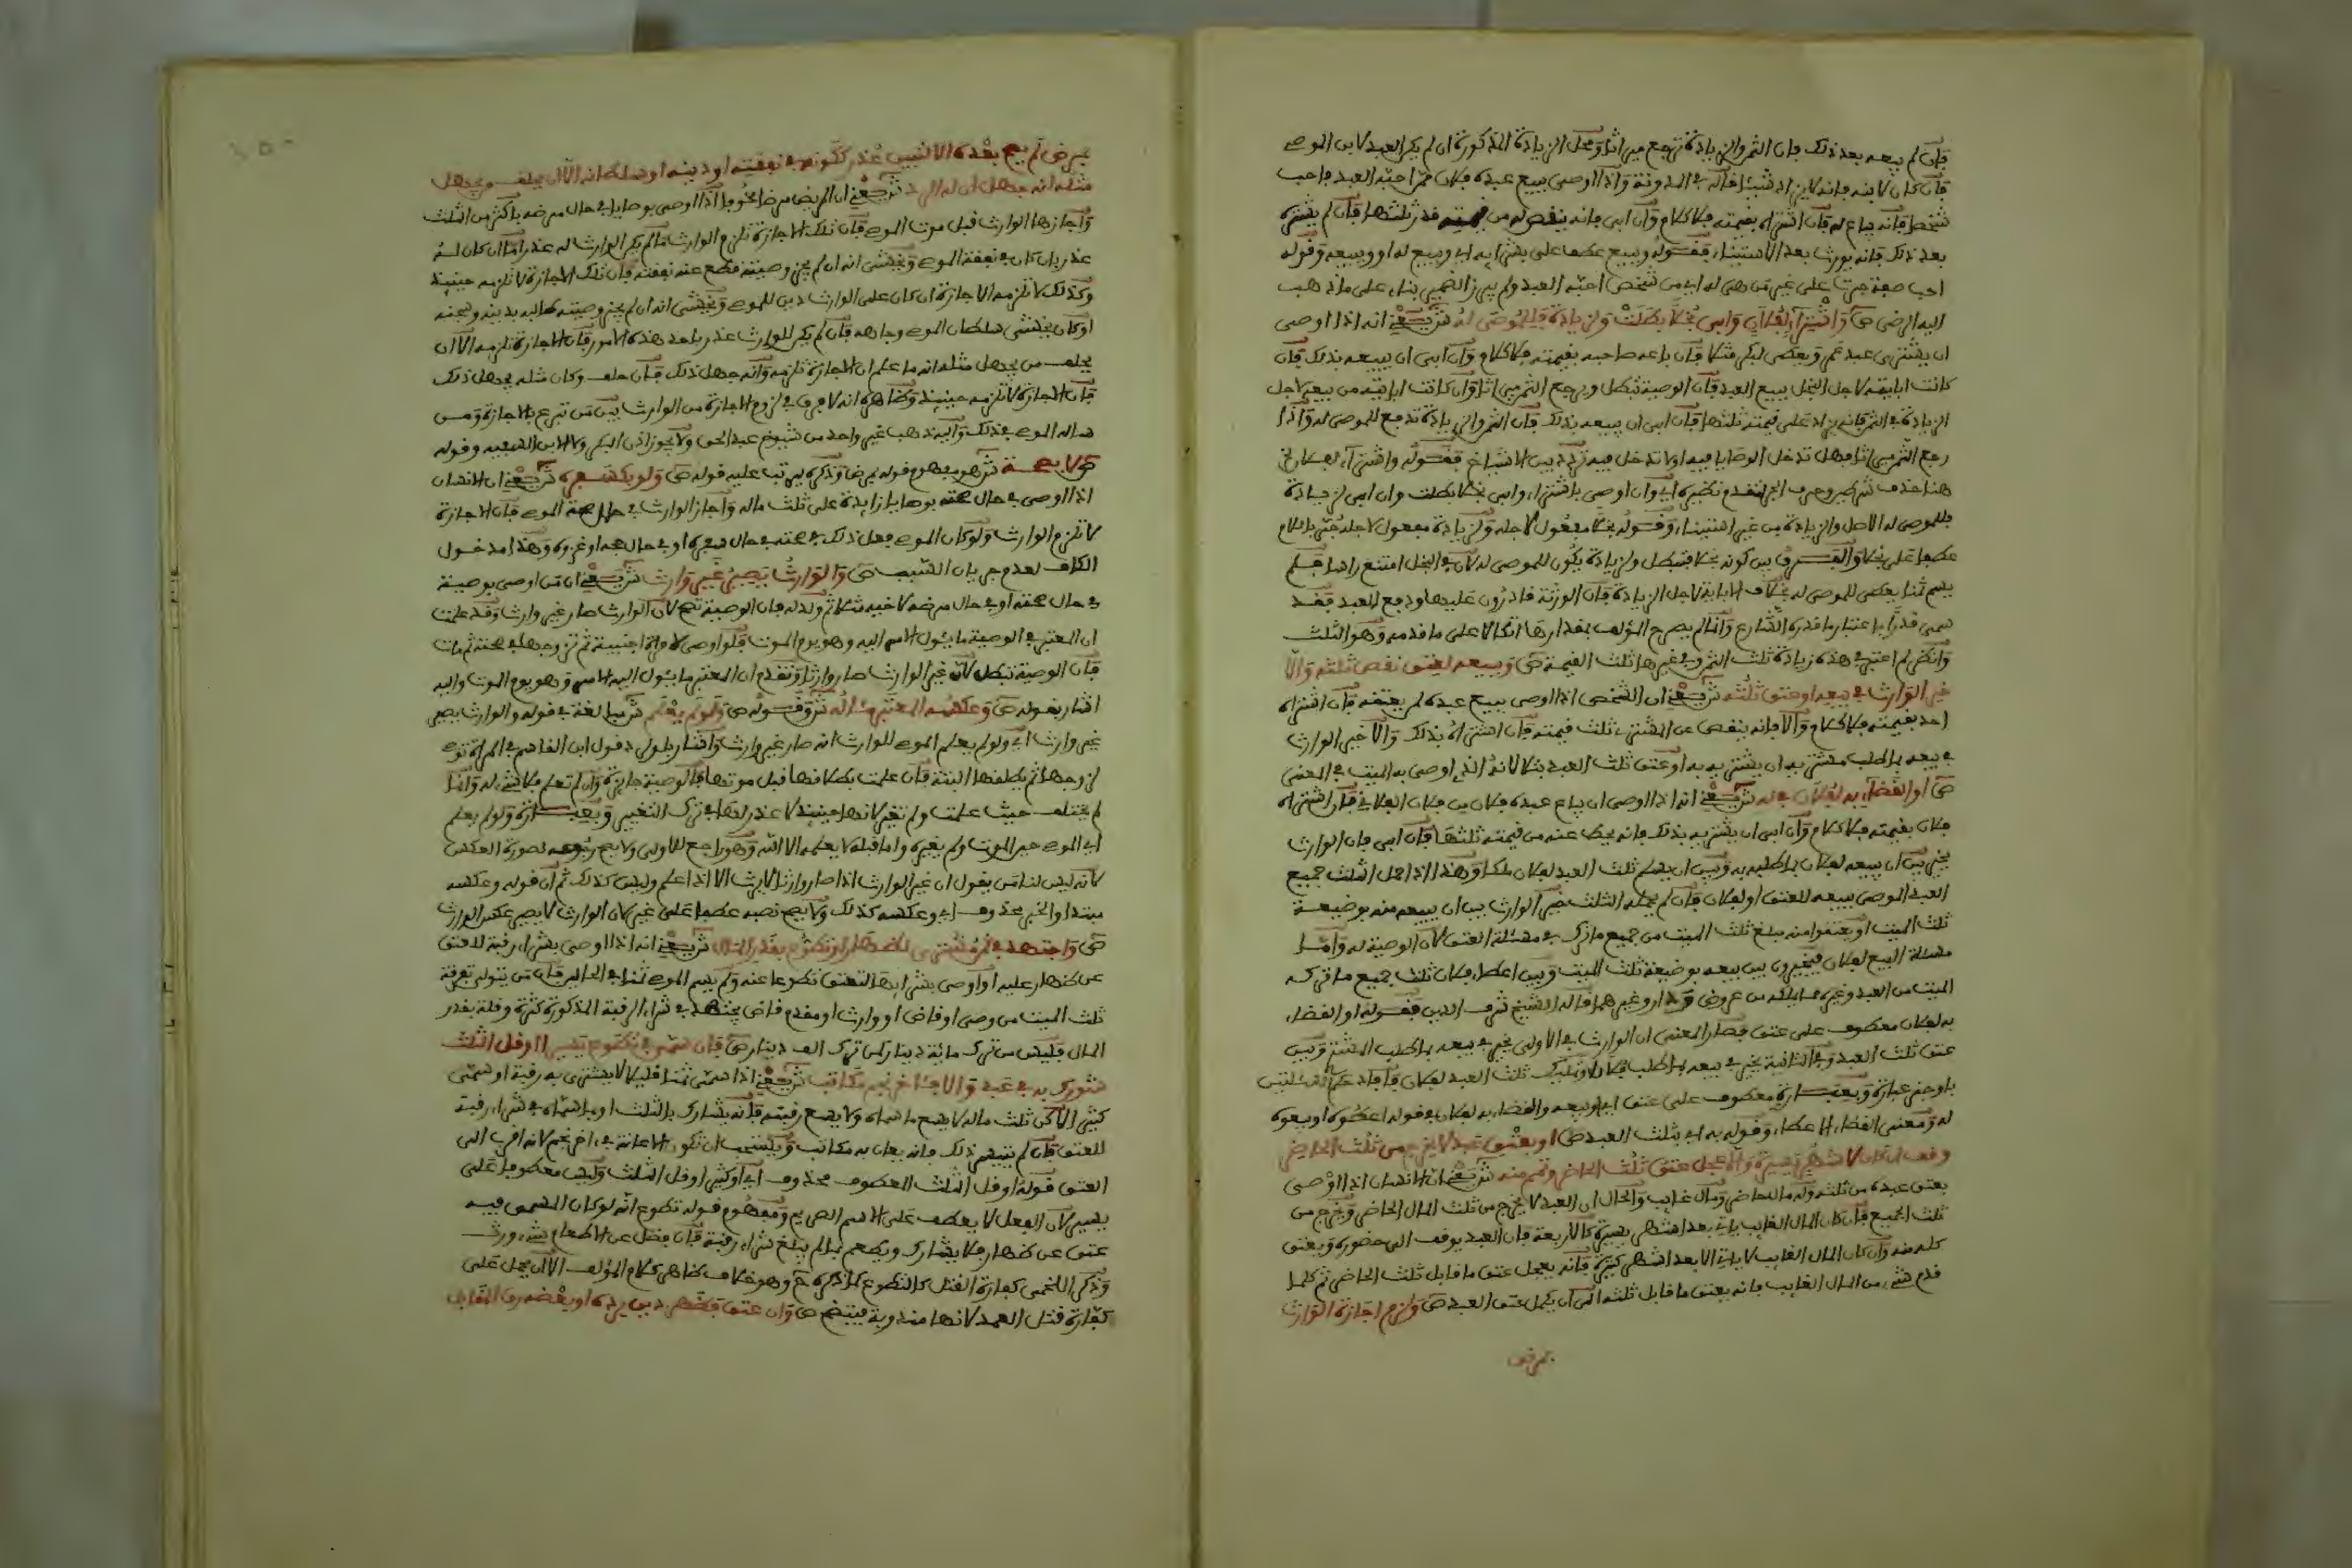 فإن لم يبعه بعد ذلك فإن الثمن والزيادة ترجع ميراثا ومحل الزيادة المذكورة ان لم يكن العبد لابن الموصي
فإن كان لابنه فإنه لا يزاد شيئا قاله في المدونة وإذا اوصى ببيع عبده فلان ممن احبه العبد فاحب
شخصا فإنه يباع له فإن اشتراه بقيمته فلا كلام وإن ابى فإنه ينقص له من قيمته قدر ثلثها فإن لم يشتره
بعد ذلك فإنه يورث بعد الاستيناء فقوله وببيع عطفا على بشرايه اي وببيع له او وببيعه وقوله
احب صفة جرت على غير من هي له اي من شخص احبه العبد ولم يبرز الضمير بناء على مذهب
اليه الرضي ص واشتراء لفلان وابى بخلا بطلت ولزيادة فللموصى له ش يعني انه اذا اوصى
ان يشترى عبد عمرو يعطى لبكر مثلا فإن باعه صاحبه بقيمته فلا كلام وإن ابى ان يبيعه بذلك فإن
كانت ابايته لاجل البخل ببيع العبد فإن الوصية تبطل ويرجع الثمن ميراثا وإن كانت ابايته من بيعه لاجل
الزيادة في الثمن فإنه يزاد على قيمته ثلثها فإن ابى ان يبيعه بذلك فإن الثمن والزيادة تدفع للموصى له وإذا
رجع الثمن ميراثا فهل تدخل الوصايا فيه او لا تدخل فيه تردد بين الاشياخ فقوله واشتراء لفلان
هنا حذف شرط وحرف الجر لتقدم نظيره اي وان اوصى باشتراء وابى بخلا بطلت وان ابى لزيادة
فللموصى له الاصل والزيادة من غير استيناء وقوله بخلا مفعول لاجله ولزيادة مفعول لاجله جر باللام
عطفا على بخلا والفرق بين كونه بخلا فتبطل ولزيادة يكون للموصى له لان في البخل امتنع راسا فلم
يسم ثمنا يعطى للموصى له بخلاف الاباية لاجل الزيادة فإن الورثة قادرون عليها ودفع العبد فقد
سمى قدرا باعتبار ما قدره الشارع وانما لم يصرح المؤلف بقدارها اتكالا على ما قدمه وهو الثلث
وانظر لم اعتبر في هذه زيادة ثلث الثمن وفي غيرها ثلث القيمة ص وببيعه لعتق نقص ثلثه وإلا
خير الوارث في بيعه او عتق ثلثه ش يعني ان الشخص اذا اوصى ببيع عبده لمن يعتقه فإن اشتراه
احد بقيمته فلا كلام وإلا فإنه ينقص عن المشتري ثلث قيمته فإن اشتراه بذلك وإلا خير الوارث
في بيعه بما طلب مشتريه ان يشتريه به او عتق ثلث العبد بتلا لانه الذي اوصى به الميت في المعنى
ص او القضاء به لفلان في له ش يعني انه اذا اوصى ان يباع عبده فلان من فلان الفلاني فإن اشتراه
فلان بقيمته فلا كلام وإن ابى ان يشتريه بذلك فإنه يحط عنه من قيمته ثلثها فإن ابى فإن الوارث
يخير بين ان يبيعه لفلان بما طلبه به وبين ان يسلم ثلث العبد لفلان ملكا وهذا اذا حمل الثلث جميع
العبد الموصى ببيعه للعتق او لفلان فإن لم يحمله الثلث خير الوارث بين ان يبيعه منه بوضيعة
ثلث الميت او يعتقوا منه مبلغ ثلث الميت من جميع ما ترك في مسئلة العتق لان الوصية له وأما
مسئلة البيع لفلان فيخيرون بين بيعه بوضيعة ثلث الميت وبين اعطاء فلان ثلث جميع ما تركه
الميت من العبد وغيره مما يملكه من عروض ودار وغيرهما قاله الشيخ شرف الدين فقوله او القضاء
به لفلان معطوف على عتق فصار المعنى ان الوارث في الاولى يخير في بيعه بما طلب المشتري وبين
عتق ثلث العبد وفي الثانية يخير في بيعه بما طلب فلان او تمليك ثلث العبد لفلان فافاد حكم المسئلتين
باوجز عبارة وبعبارة معطوف على عتق اي او بيعه والقضاء به لفلان في قوله اعطوه او بيعوه
له ومعنى القضاء الاعطاء وقوله به اي بثلث العبد ص او بعتق عبد لا يخرج من ثلث الحاضر
وقف ان كان لاشهر يسيرة وإلا عجل عتق ثلث الحاضر وتمم منه ش يعني ان الانسان اذا اوصى
بعتق عبده من ثلثه وله مال حاضر ومال غايب والحال ان العبد لا يخرج من ثلث المال الحاضر ويخرج من
ثلث الجميع فإن كان المال الغايب ياتي بعد اشهر يسيرة كالاربعة فإن العبد يوقف الى حضوره ويعتق
كله منه وإن كان المال الغايب لا ياتي الا بعد اشهر كثيرة فإنه يعجل عتق ما قابل ثلث الحاضر ثم كلما
قدم شيء من المال الغايب فإنه يعتق ما قابل ثلثه الى ان يكمل عتق العبد ص ولزم اجازة الوارث
بمرض
بمرض لم يصح بعده الا لتبين عذر ككونه في نفقته او دينه او سلطانه الا ان يحلف من يجهل
مثله انه جهل ان له الرد ش يعني ان المريض مرضا مخوفا اذا اوصى بوصايا في حال مرضه باكثر من الثلث
وأجازها الوارث قبل موت الموصي فإن تلك الاجازة تلزم الوارث ما لم يكن الوارث له عذر اما ان كان له
عذر بان كان في نفقة الموصي ويخشى انه ان لم يجز وصيته قطع عنه نفقته فإن تلك الاجازة لا تلزمه حينيذ
وكذلك لا تلزمه الاجازة ان كان على الوارث دين للموصي ويخشى انه ان لم يجز وصيته طالبه بدينه وسجنه
او كان يخشى سلطان الموصي وجاهه فإن لم يكن للوارث عذر باحد هذه الامور فإن الاجازة تلزمه الا ان
يحلف من يجهل مثله انه ما علم ان الاجازة تلزمه وانه جهل ذلك فإن حلف وكان مثله يجهل ذلك
فإن الاجازة لا تلزمه حينيذ وظاهره انه لا فرق في لزوم الاجازة من الوارث بين من تبرع بالاجازة ومن
ساله الموصي في ذلك واليه ذهب غير واحد من شيوخ عبد الحق ولا يجوز اذن البكر ولا الابن السفيه وقوله
ص لا بصحة ش هو مفهوم قوله بمرض وذكره ليرتب عليه قوله ص ولو بكسفره ش يعني ان الانسان
اذا اوصى في حال صحته بوصايا زايدة على ثلث ماله واجاز الوارث في حال صحة الموصي فإن الاجازة
لا تلزم الوارث ولو كان الموصي فعل ذلك في صحته في حال سفره او في حال حجه او غزوه وهذا مدخول
الكاف لعدم جريان السبب ص والوارث يصير غير وارث ش يعني ان من اوصى بوصية
في حال صحته او في حال مرضه لاخيه مثلا ثم ولد له فإن الوصية تصح لان الوارث صار غير وارث وقد علمت
ان المعتبر في الوصية ما يئول الامر اليه وهو يوم الموت فلو اوصى لامراة اجنبية ثم تزوجها في صحته ثم مات
فإن الوصية تبطل لان غير الوارث صار وارثا وتقدم ان المعتبر ما يئول اليه الامر وهو يوم الموت واليه
اشار بقوله ص وعكسه المعتبر مئاله ش وقوله ص ولو لم يعلم ش مبالغة في قوله والوارث يصير
غير وارث اي ولو لم يعلم الموصي للوارث انه صار غير وارث واشار بلو لرد قول ابن القاسم في المراة توصي
لزوجها ثم يطلقها البتة فإن علمت بطلاقها قبل موتها فالوصية جايزة وان لم تعلم فلا شيء له وانما
لم يختلف حيث علمت ولم تغير لانها حينيذ لا عذر لها في ترك التغيير وبعبارة ولو لم يعلم
اي الموصي حين الموت ولم يغيره واما قبله لا يعلمه الا الله وهو راجع للاولى ولا يصح رجوعه لصورة العكس
لانه ليس لنا من يقول ان غير الوارث اذا صار وارثا لا يرث الا اذا علم وليس كذلك ثم ان قوله وعكسه
مبتدا والخبر محذوف اي وعكسه كذلك ولا يصح نصبه عطفا على غير لان الوارث لا يصير عكس الوارث
ص واجتهد في ثمن مشترى لظهار او تطوع بقدر المال ش يعني انه اذا اوصى بشراء رقبة للعتق
عن ظهار عليه او اوصى بشرايها لتعتق تطوعا عنه ولم يسم الموصي ثمنا في الحالين فإن من يتولى تفرقة
ثلث الميت من وصي او قاض او وارث او مقدم قاض يجتهد في شراء الرقبة المذكورة كثرة وقلة بقدر
المال فليس من ترك مائة دينار كمن ترك الف دينار ص فإن سمى في تطوع يسيرا او قل الثلث
شورك به في عبد وإلا فئاخر نجم مكاتب ش يعني اذا سمى ثمنا قليلا لا يشترى به رقبة او سمى
كثيرا لكن ثلث ماله لا يسع ما سماه ولا يسع رقبة فإنه يشارك بالثلث او بما سماه في شراء رقبة
للعتق فإن لم يتيسر ذلك فإنه يعان به مكاتب ويستحب ان تكون الاعانة في اخر نجم لانه اقرب الى
العتق قوله او قل الثلث المعطوف محذوف اي او كثيرا وقل الثلث وليس معطوفا على
يسيرا لان الفعل لا يعطف على الاسم الصريح ومفهوم قوله تطوع انه لو كان المسمى فيه
عتق عن ظهار فلا يشارك ويطعم بما لم يبلغ شراء رقبة فإن فضل عن الاطعام شيء ورث
وذكر اللخمي كفارة القتل كالتطوع كما ذكره ح وهو خلاف ظاهر كلام المؤلف الا ان يحمل على
كفارة قتل العمد لانها مندوبة فيتضح ص وإن عتق فظهر دين يرده او بعضه رق المقابل